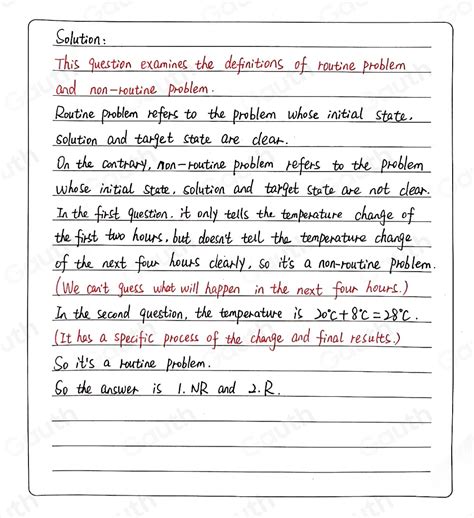 Solution:
This question examines the definitions of routine problem
and non-routine problem.
Routine problem refers to the problem whose initial state,
solution and target state are clear.
On the contrary, non-routine problem refers to the problem
whose initial state, solution and target state are not clear.
In the first question, it only tells the temperature change of
the first two hours, but doesn't tell the temperature change
of the next four hours clearly, so it's a non-routine problem.
(We can't guess what will happen in the next four hours.)
In the second question, the temperature is 20°C+8°C=28°C.
(It has a specific process of the change and final results.)
So it's a routine problem.
So the answer is 1. NR and 2. R.